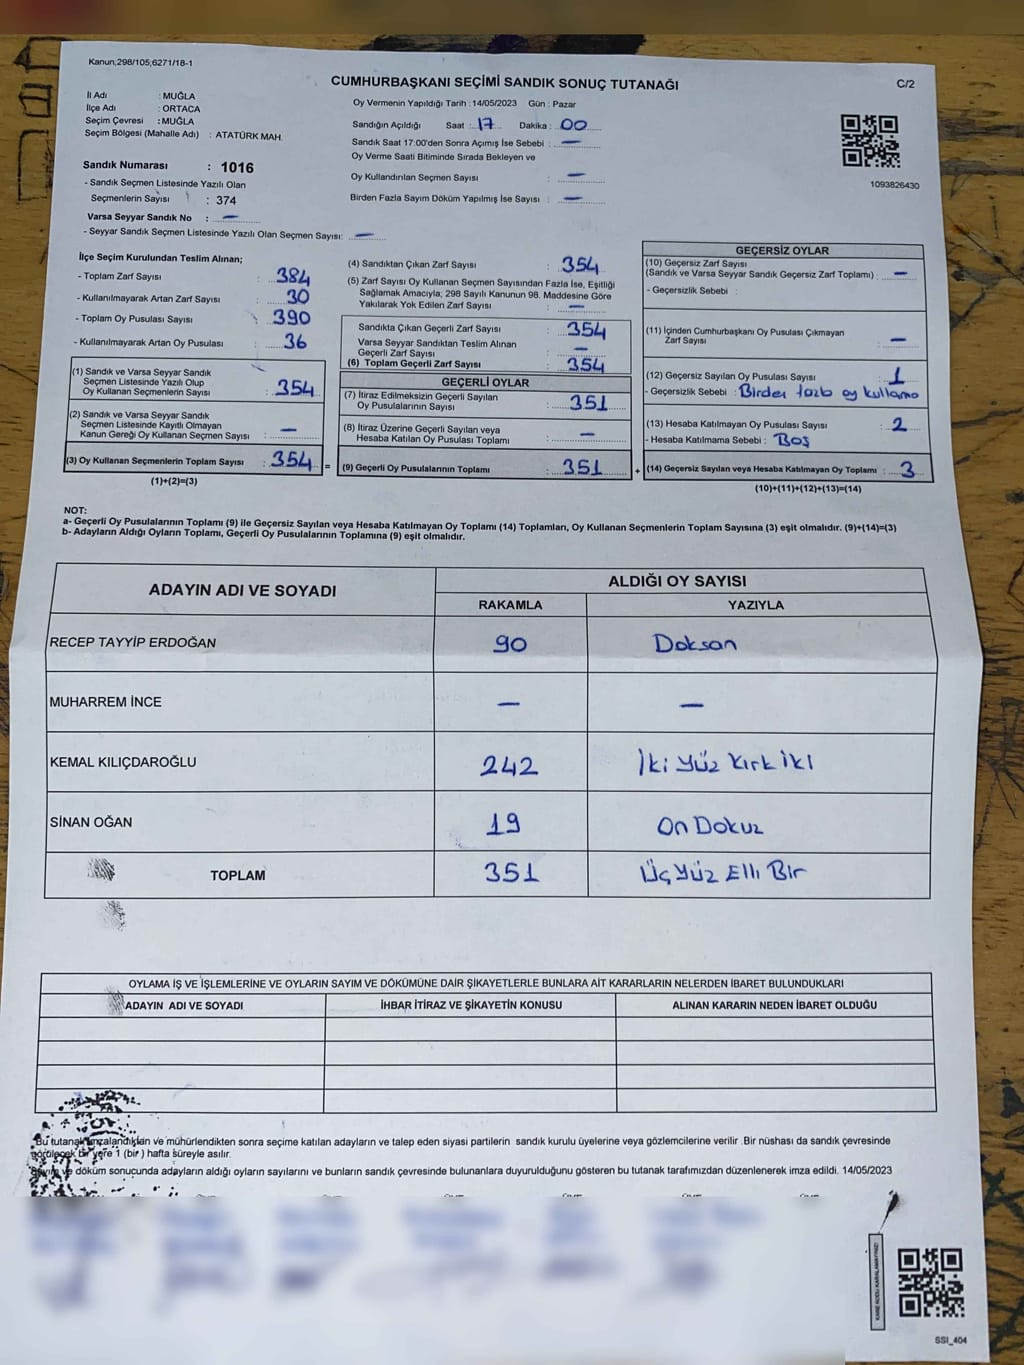 Kanun;298/105;6271/18-1
C/2
CUMHURBAŞKANI SEÇİMİ SANDIK SONUÇ TUTANAĞI
İl Adı : MUĞLA
İlçe Adı : ORTACA
Seçim Çevresi : MUĞLA
Seçim Bölgesi (Mahalle Adı) : ATATÜRK MAH.
Sandık Numarası : 1016
- Sandık Seçmen Listesinde Yazılı Olan
Seçmenlerin Sayısı : 374
Varsa Seyyar Sandık No : —
- Seyyar Sandık Seçmen Listesinde Yazılı Olan Seçmen Sayısı: —
Oy Vermenin Yapıldığı Tarih : 14/05/2023 Gün : Pazar
Sandığın Açıldığı Saat : 17 Dakika : 00
Sandık Saat 17:00'den Sonra Açımış İse Sebebi : —
Oy Verme Saati Bitiminde Sırada Bekleyen ve
Oy Kullandırılan Seçmen Sayısı : —
Birden Fazla Sayım Döküm Yapılmış İse Sayısı : —
1093826430
İlçe Seçim Kurulundan Teslim Alınan;
- Toplam Zarf Sayısı : 384
- Kullanılmayarak Artan Zarf Sayısı : 30
- Toplam Oy Pusulası Sayısı : 390
- Kullanılmayarak Artan Oy Pusulası : 36
(1) Sandık ve Varsa Seyyar Sandık
Seçmen Listesinde Yazılı Olup
Oy Kullanan Seçmenlerin Sayısı : 354
(2) Sandık ve Varsa Seyyar Sandık
Seçmen Listesinde Kayıtlı Olmayan
Kanun Gereği Oy Kullanan Seçmen Sayısı : —
(3) Oy Kullanan Seçmenlerin Toplam Sayısı : 354 =
(1)+(2)=(3)
(4) Sandıktan Çıkan Zarf Sayısı : 354
(5) Zarf Sayısı Oy Kullanan Seçmen Sayısından Fazla İse, Eşitliği
Sağlamak Amacıyla; 298 Sayılı Kanunun 98. Maddesine Göre
Yakılarak Yok Edilen Zarf Sayısı : —
Sandıkta Çıkan Geçerli Zarf Sayısı : 354
Varsa Seyyar Sandıktan Teslim Alınan
Geçerli Zarf Sayısı : —
(6) Toplam Geçerli Zarf Sayısı : 354
GEÇERLİ OYLAR
(7) İtiraz Edilmeksizin Geçerli Sayılan
Oy Pusulalarının Sayısı : 351
(8) İtiraz Üzerine Geçerli Sayılan veya
Hesaba Katılan Oy Pusulası Toplamı : —
(9) Geçerli Oy Pusulalarının Toplamı : 351 +
GEÇERSİZ OYLAR
(10) Geçersiz Zarf Sayısı
(Sandık ve Varsa Seyyar Sandık Geçersiz Zarf Toplamı) : —
- Geçersizlik Sebebi :
(11) İçinden Cumhurbaşkanı Oy Pusulası Çıkmayan
Zarf Sayısı : —
(12) Geçersiz Sayılan Oy Pusulası Sayısı : 1
- Geçersizlik Sebebi : Birden fazla oy kullama
(13) Hesaba Katılmayan Oy Pusulası Sayısı : 2
- Hesaba Katılmama Sebebi : Boş
(14) Geçersiz Sayılan veya Hesaba Katılmayan Oy Toplamı : 3
(10)+(11)+(12)+(13)=(14)
NOT:
a- Geçerli Oy Pusulalarının Toplamı (9) ile Geçersiz Sayılan veya Hesaba Katılmayan Oy Toplamı (14) Toplamları, Oy Kullanan Seçmenlerin Toplam Sayısına (3) eşit olmalıdır. (9)+(14)=(3)
b- Adayların Aldığı Oyların Toplamı, Geçerli Oy Pusulalarının Toplamına (9) eşit olmalıdır.
ADAYIN ADI VE SOYADI
ALDIĞI OY SAYISI
RAKAMLA YAZIYLA
RECEP TAYYİP ERDOĞAN 90 Doksan
MUHARREM İNCE — —
KEMAL KILIÇDAROĞLU 242 İki Yüz Kırk İki
SİNAN OĞAN 19 On Dokuz
TOPLAM 351 Üç Yüz Elli Bir
OYLAMA İŞ VE İŞLEMLERİNE VE OYLARIN SAYIM VE DÖKÜMÜNE DAİR ŞİKAYETLERLE BUNLARA AİT KARARLARIN NELERDEN İBARET BULUNDUKLARI
ADAYIN ADI VE SOYADI İHBAR İTİRAZ VE ŞİKAYETİN KONUSU ALINAN KARARIN NEDEN İBARET OLDUĞU
Bu tutanak imzalandıktan ve mühürlendikten sonra seçime katılan adayların ve talep eden siyasi partilerin sandık kurulu üyelerine veya gözlemcilerine verilir .Bir nüshası da sandık çevresinde
görülecek bir yere 1 (bir ) hafta süreyle asılır.
ve döküm sonucunda adayların aldığı oyların sayılarını ve bunların sandık çevresinde bulunanlara duyurulduğunu gösteren bu tutanak tarafımızdan düzenlenerek imza edildi. 14/05/2023
KARE KODU KARALAMAYINIZ!
SSI_404